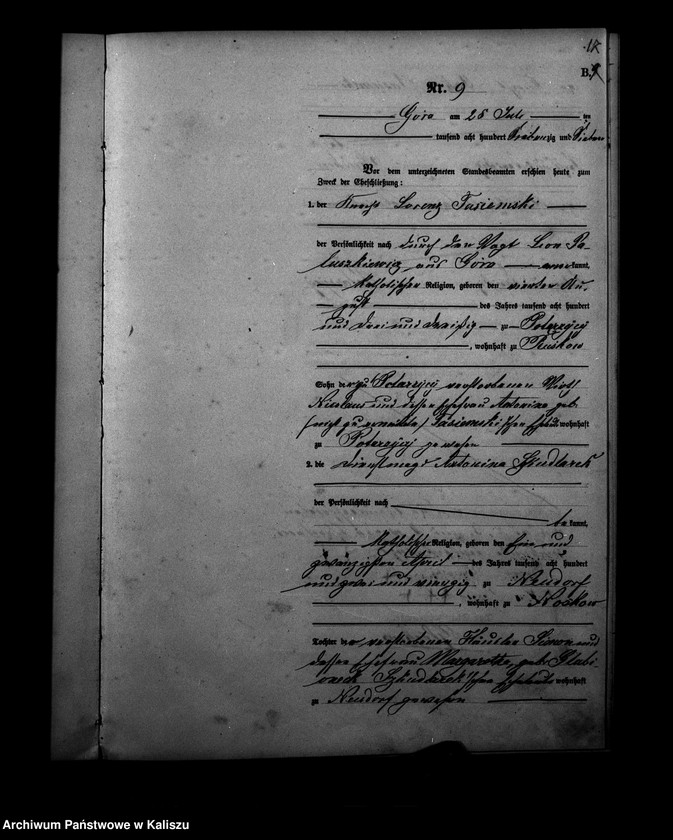 B.
Nr. 9
Góra am 25 Juli
tausend acht hundert siebenzig und Sieben
Vor dem unterzeichneten Standesbeamten erschien heute zum
Zweck der Eheschließung:
1. der Knecht Lorenz Tasiemski
der Persönlichkeit nach durch den Vogt Leon Pa-
luszkiewicz aus Góra anerkannt,
katholischer Religion, geboren den vierten Au-
gust des Jahres tausend acht hundert
und drei und dreißig zu Potarzyce
, wohnhaft zu Ruskow
Sohn des zu Potarzyce verstorbenen Wirth
Nicolaus und dessen Ehefrau Antonina geb.
(nicht zu ermitteln) Tasiemski'schen Eheleute wohnhaft
zu Potarzyce gewesen
2. die Dienstmagd Antonina Szkudlarek
der Persönlichkeit nach
bekannt,
katholischer Religion, geboren den ein und
zwanzigsten April des Jahres tausend acht hundert
und zwei und vierzig zu Neudorf
, wohnhaft zu
Tochter der verstorbenen Häusler Simon und
dessen Ehefrau Margaretha, geb.
Szkudlarek'schen Eheleute wohnhaft
zu Neudorf gewesen
Archiwum Państwowe w Kaliszu